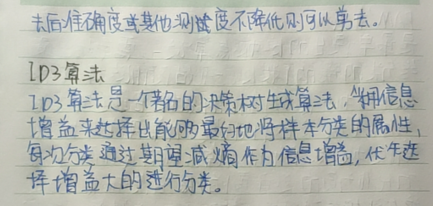 去后准确度或其他测试度不降低则可以剪去。
ID3算法
ID3算法是一个著名的决策树生成算法,采用信息
增益来选择出能够最好地将样本分类的属性,
每次分类通过期望减熵作为信息增益,优先选
择增益大的进行分类。